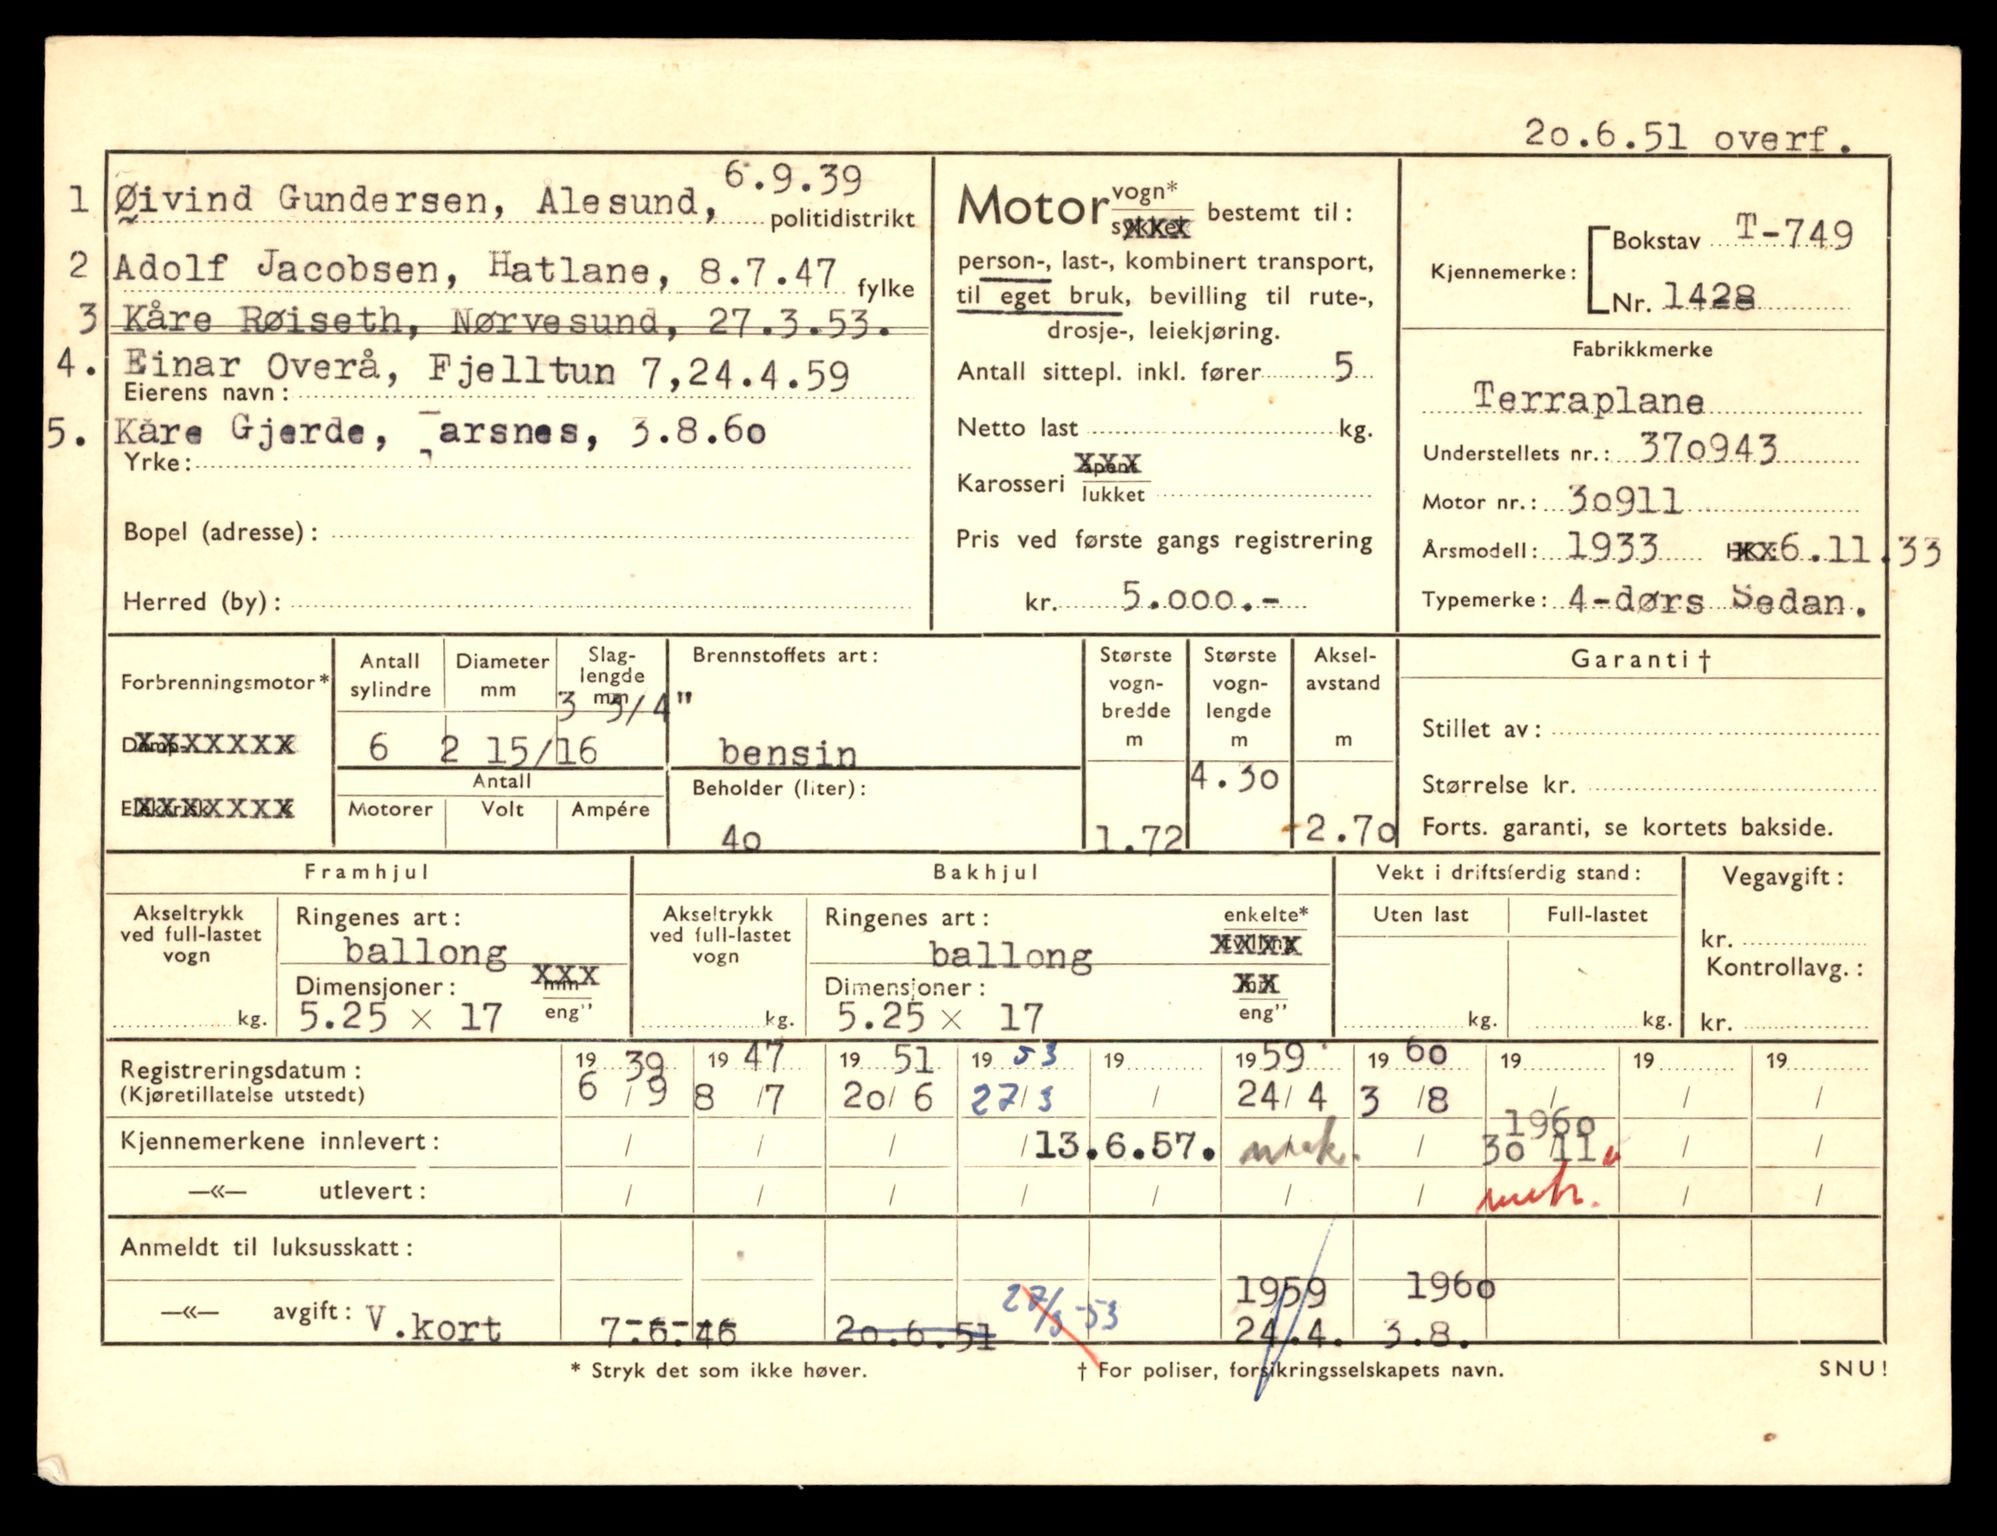 20.6.51 overf.
1 Øivind Gundersen, Alesund, 6.9.39
politidistrikt
2 Adolf Jacobsen, Hatlane, 8.7.47 fylke
3 Kåre Røiseth, Nørvesund, 27.3.53.
4. Einar Overå, Fjelltun 7,24.4.59
Eierens navn:
5. Kåre Gjerde, arsnes, 3.8.60
Yrke:
Bopel (adresse):
Herred (by):
Motor vogn* sykkel bestemt til:
person-, last-, kombinert transport,
til eget bruk, bevilling til rute-,
drosje-, leiekjøring.
Antall sittepl. inkl. fører 5
Netto last kg.
Karosseri åpent lukket
Pris ved første gangs registrering
kr. 5.000.-
Kjennemerke: Bokstav T-749
Nr. 1428
Fabrikkmerke
Terraplane
Understellets nr.: 370943
Motor nr.: 30911
Årsmodell: 1933 6.11.33
Typemerke: 4-dørs Sedan.
Forbrenningsmotor*
Damp- XXXXXXX
Elektrisk XXXXXXX
Antall sylindre
6
Diameter mm
2 15/16
Slag-
lengde
mm
3 3/4"
Antall
Motorer Volt Ampére
Brennstoffets art:
bensin
Beholder (liter):
40
Største
vogn-
bredde
m
1.72
Største
vogn-
lengde
m
4.30
Aksel-
avstand
m
2.70
Garanti †
Stillet av:
Størrelse kr.
Forts. garanti, se kortets bakside.
Framhjul
Akseltrykk
ved full-lastet
vogn
kg.
Ringenes art:
ballong
Dimensjoner: mm XXX
5.25 x 17 eng"
Bakhjul
Akseltrykk
ved full-lastet
vogn
kg.
Ringenes art: enkelte*
ballong tvilling XXXX
Dimensjoner: mm XX
5.25 x 17 eng"
Vekt i driftsferdig stand:
Uten last Full-lastet
kg. kg.
Vegavgift:
kr.
Kontrollavg.:
kr.
Registreringsdatum: 19 39 19 47 19 51 19 53 19 19 59 19 60 19 19 19
(Kjøretillatelse utstedt) 6/9 8/7 20/6 27/3 / 24/4 3/8 / / /
1960
Kjennemerkene innlevert: / / / / 13.6.57. / / 30/11 / /
—«— utlevert: / / / / / / / / /
Anmeldt til luksusskatt:
1959 1960
—«— avgift: V.kort 7-6-46 20.6.51 27/3-53 24.4. 3.8.
* Stryk det som ikke høver.
† For poliser, forsikringsselskapets navn.
SNU!